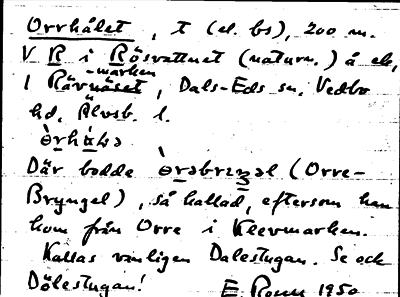 Orrhålet, t (el. bs), 200 m.
V R i Rösvattnet (naturn.) å ek,
1 Rävnäset -marken, Dals-Eds sn, Vedbo
hd, Älvsb. l.
Där bodde (Orre-
Bryngel), så kallad, eftersom han
kom från Orre i Klevmarken.
Kallas vanligen Dalestugan. Se ock
Dölestugan! E Rosen 1950